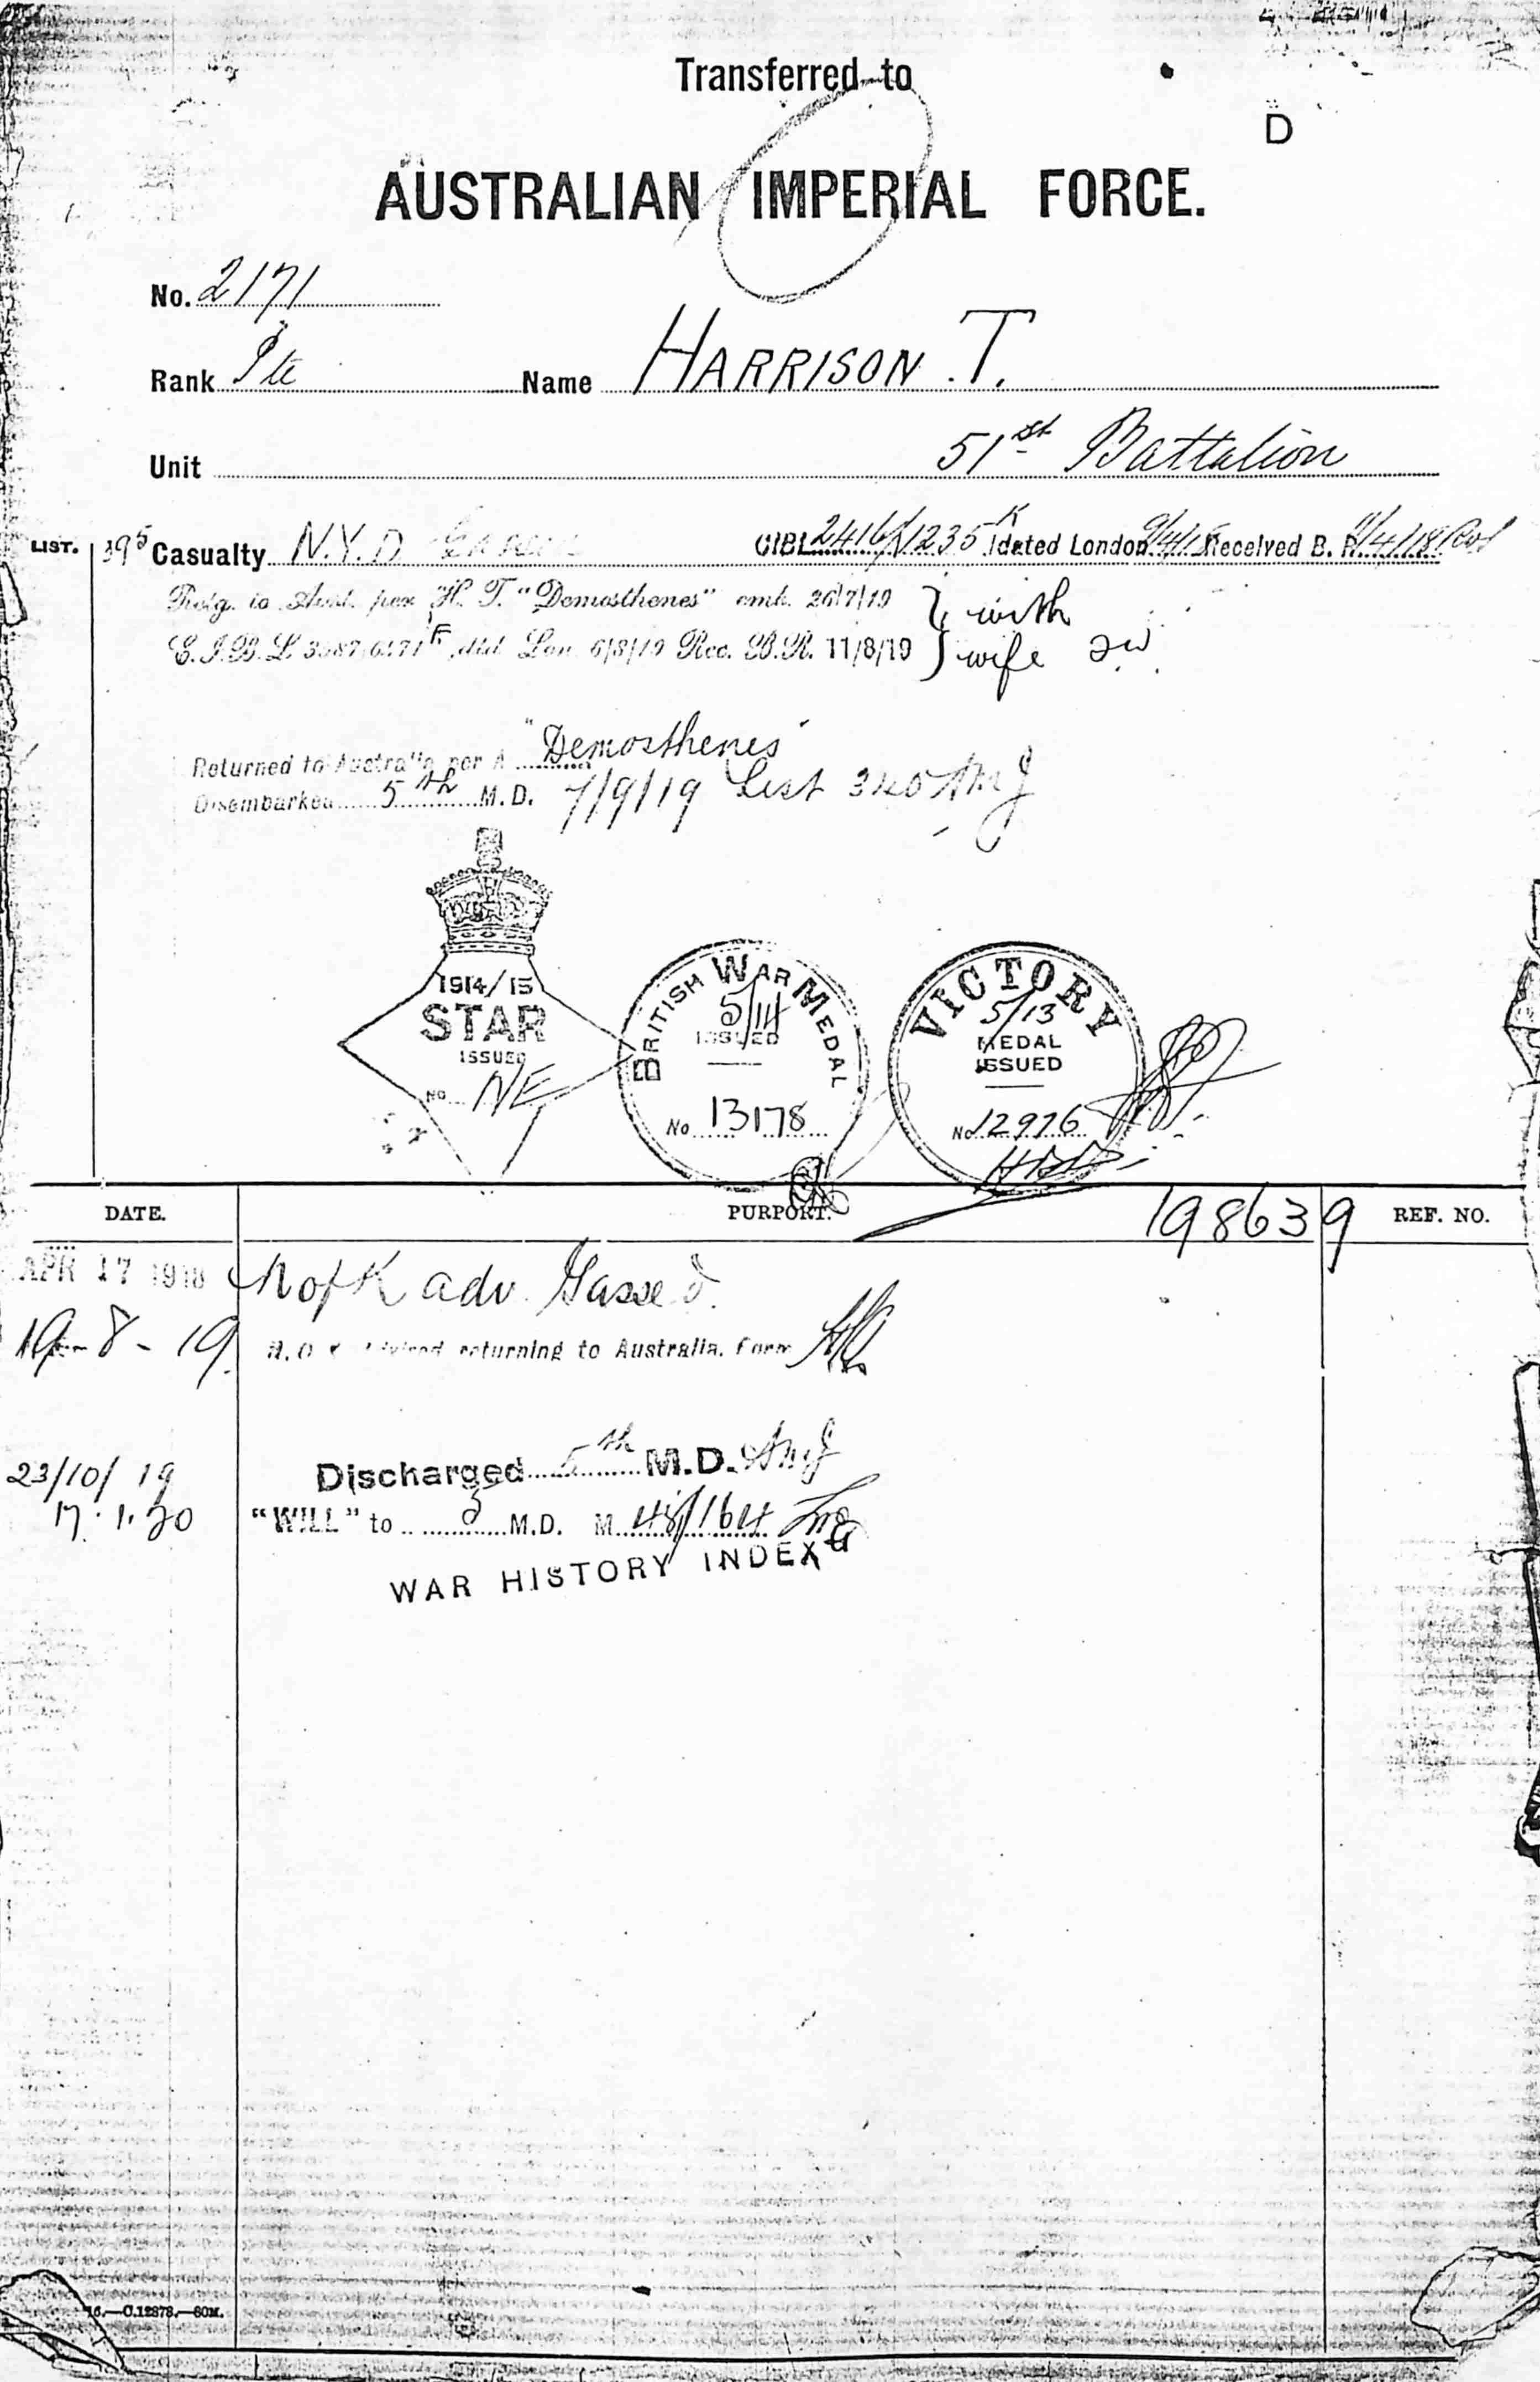 Transferred to
D
AUSTRALIAN IMPERIAL FORCE.
No. 2171
Rank Pte Name HARRISON. T.
Unit 51st Battalion
LIST. 195 Casualty N.Y.D. CIBL 2416/1235 K dated London 9/4/18 Received B. R. 11/4/18
Retg. to Aust. per H. T. "Demosthenes" emb. 26/7/19 } with
E.I.B.L. dtd. Lon. 6/8/19 Rec. B.R. 11/8/19 } wife
Returned to Australia per "Demosthenes"
Disembarked 5th M.D. 7/9/19 List 340 AMJ
1914/15
STAR
ISSUED
No. NE
BRITISH WAR MEDAL
5/14
ISSUED
No 13178
VICTORY
5/13
MEDAL
ISSUED
No 12976
DATE. PURPORT. 198639 REF. NO.
APR 17 1918 N of K adv. Gassed.
19-8-19 returning to Australia. Form
23/10/19 Discharged 5th M.D. AMJ
17.1.20 "WILL" to 5 M.D. M 48/164
WAR HISTORY INDEX
16.—C.12878.—60M.